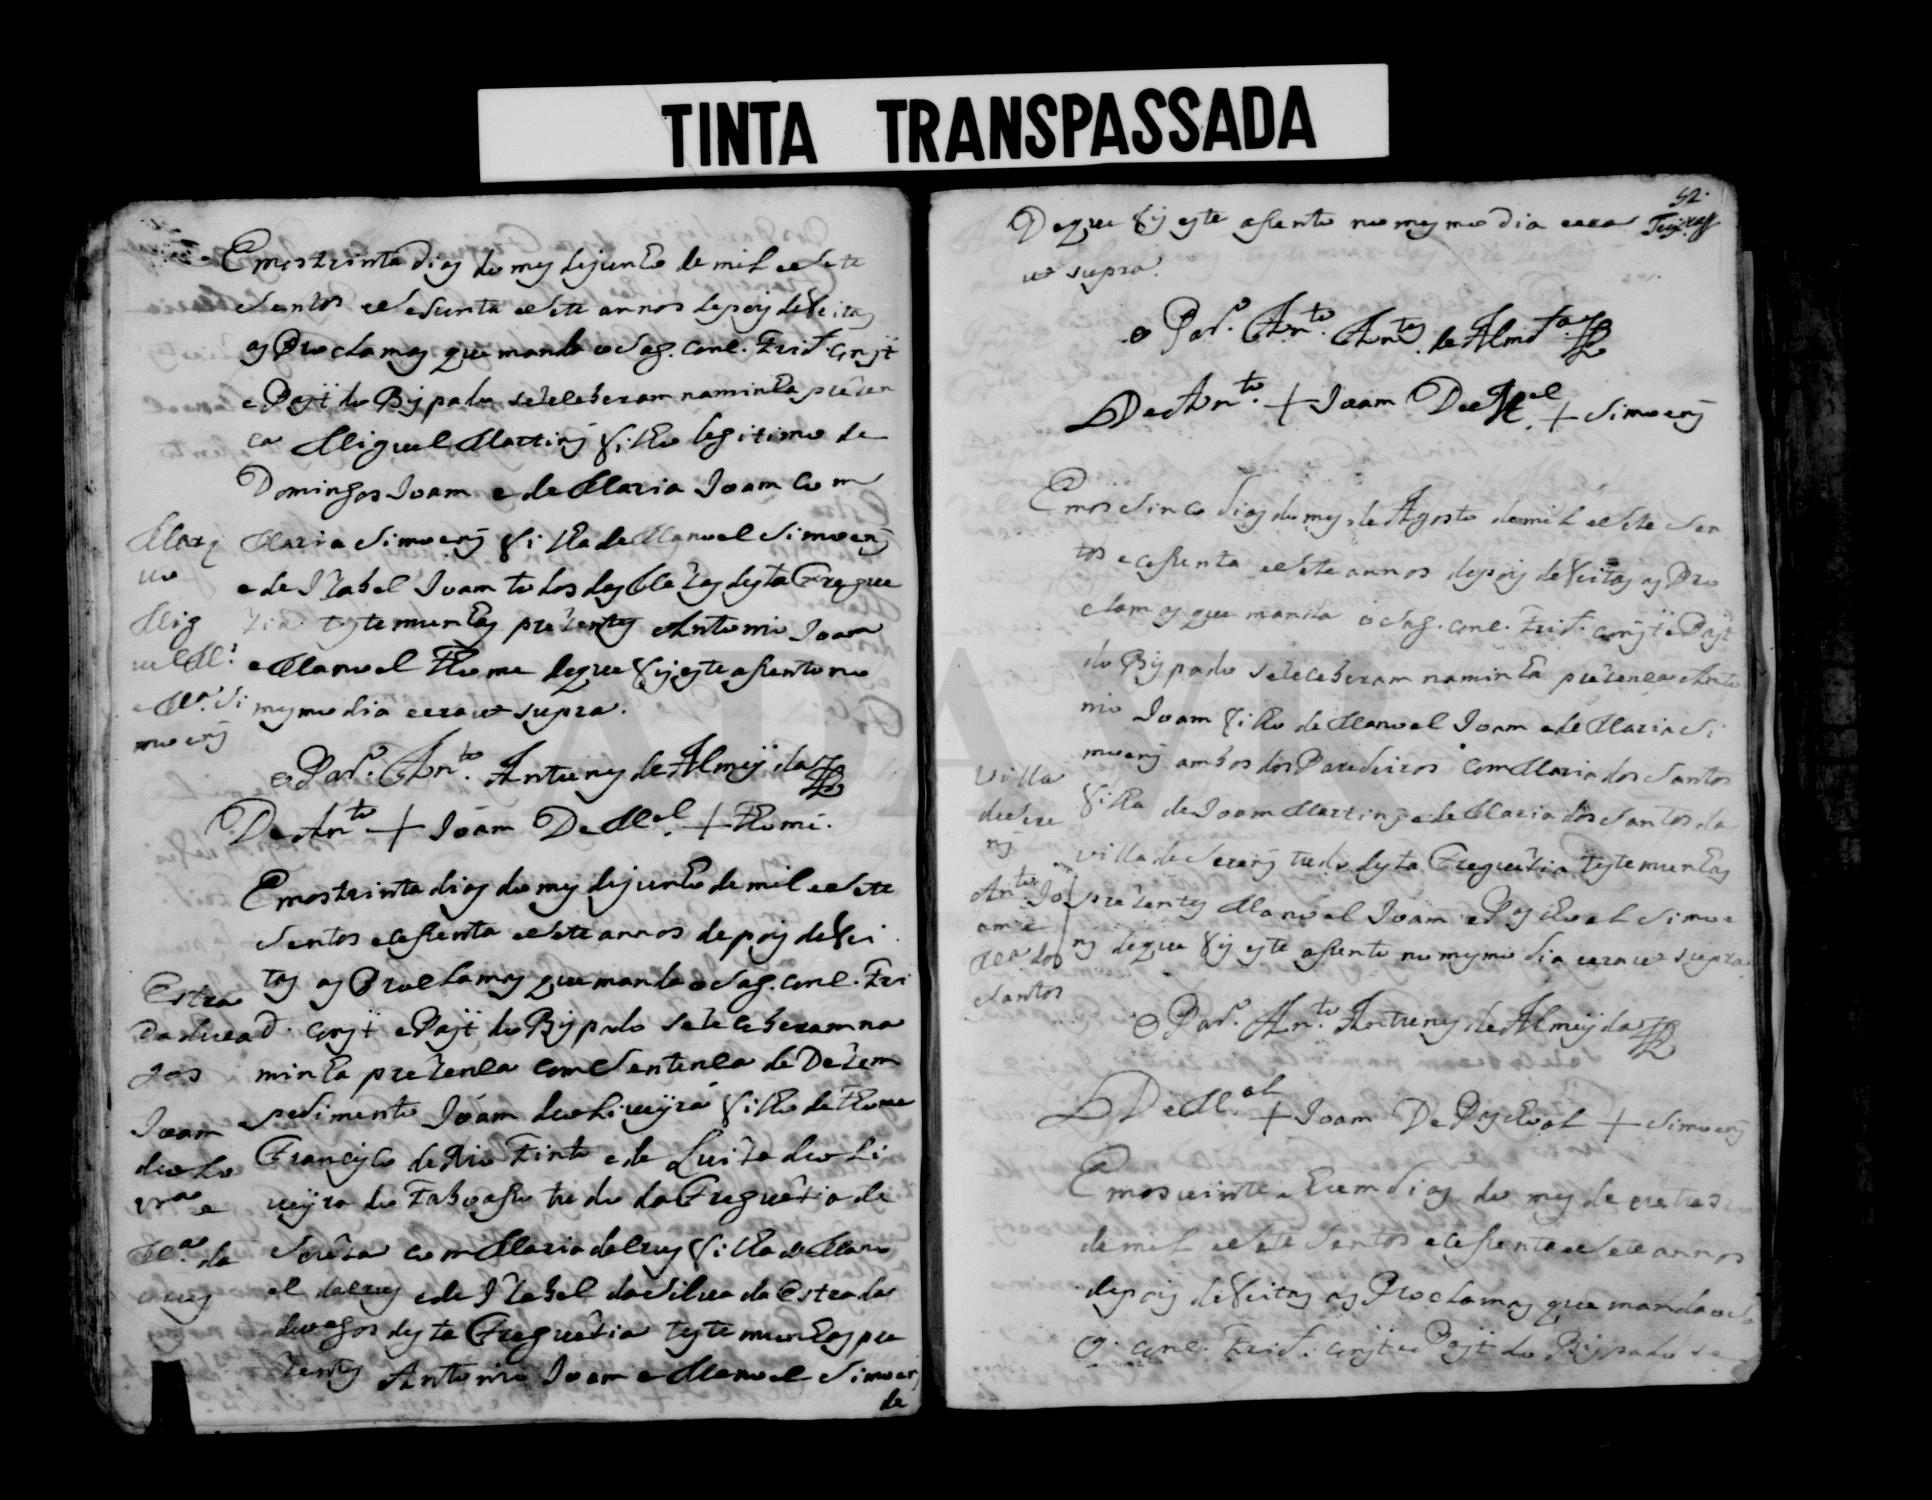 TINTA TRANSPASSADA
Emos trinta dias do mes de junho de mil e sete
sentos e sesenta e sete annos depois de feitas
as Proclamas que manda o Sag. Conc. Trid. Const
e Const do Bispado se selebraram na minha prezen
ca Miguel Martins filho legitimo de
Domingos Joam e de Maria Joam com
Maria Simoens filha de Manoel Simoens
e de Izabel Joam todos das desta Fregue
zia testemunhas prezentes Antonio Joam
e Manoel Thome de que fis este asento no
mesmo dia e era ut supra.
Marq
no
Mig
uel M.s
e M.a Si
moens
o Par.o An.to Antunes de Almeijda
De An.to + Joam De M.el + Thomé.
Emos trinta dias do mes de junho de mil e sete
sentos e sesenta e sete annos depois de fei
tas as Proclamas que manda o Sag. Conc. Tri
d. Const do Bispado se selebraram na
minha prezenca com sentenca de Dezem
pedimento Joam de oliveijra filho de Thome
Francisco de Rio Tinto e de Luiza de oli
veijra do Taboaso tudo da Freguezia de
Soza com Maria da Crus filha de Mano
el da Crus e de Izabel da Silva da Estrada
de vagos desta Freguezia testemunhas pre
zentes Antonio Joam e Manoel Simoens
de
Estra
da de va
gos
Joam
de oli
vr.a e
M.a da
Crus
52.
De que fis este asento no mesmo dia e era
ut supra.
o Par.o An.to Ant.es de Almd.a
De An.to + Joam De M.el + Simoens
Emos sinco dias do mes de Agosto de mil e sete sen
tos e sesenta e sete annos depois de feitas as Pro
clamas que manda o Sag. Conc. Trid. Const e
do Bispado se selebraram na minha prezenca Anto
nio Joam filho de Manoel Joam e de Maria Si
moens ambos dos Paredeiros com Maria dos Santos
filha de Joam Martins e de Maria dos Santos da
villa de Serem tudo desta Freguezia testemunhas
prezentes Manoel Joam e Pascoal Simoe
ns de que fis este asento no mesmo dia e era ut supra
villa
de Sere
m
An.to Jo
am e
M.a dos
Santos
o Par.o An.to Antunes de Almeijda
De M.el + Joam De Pascoal + Simoens
Emos vinte e hum dias do mes de
de mil e sete sentos e sesenta e sete annos
depois de feitas as Proclamas que manda o Sa
g. Conc. Trid. Const e do Bispado se
ADAVR